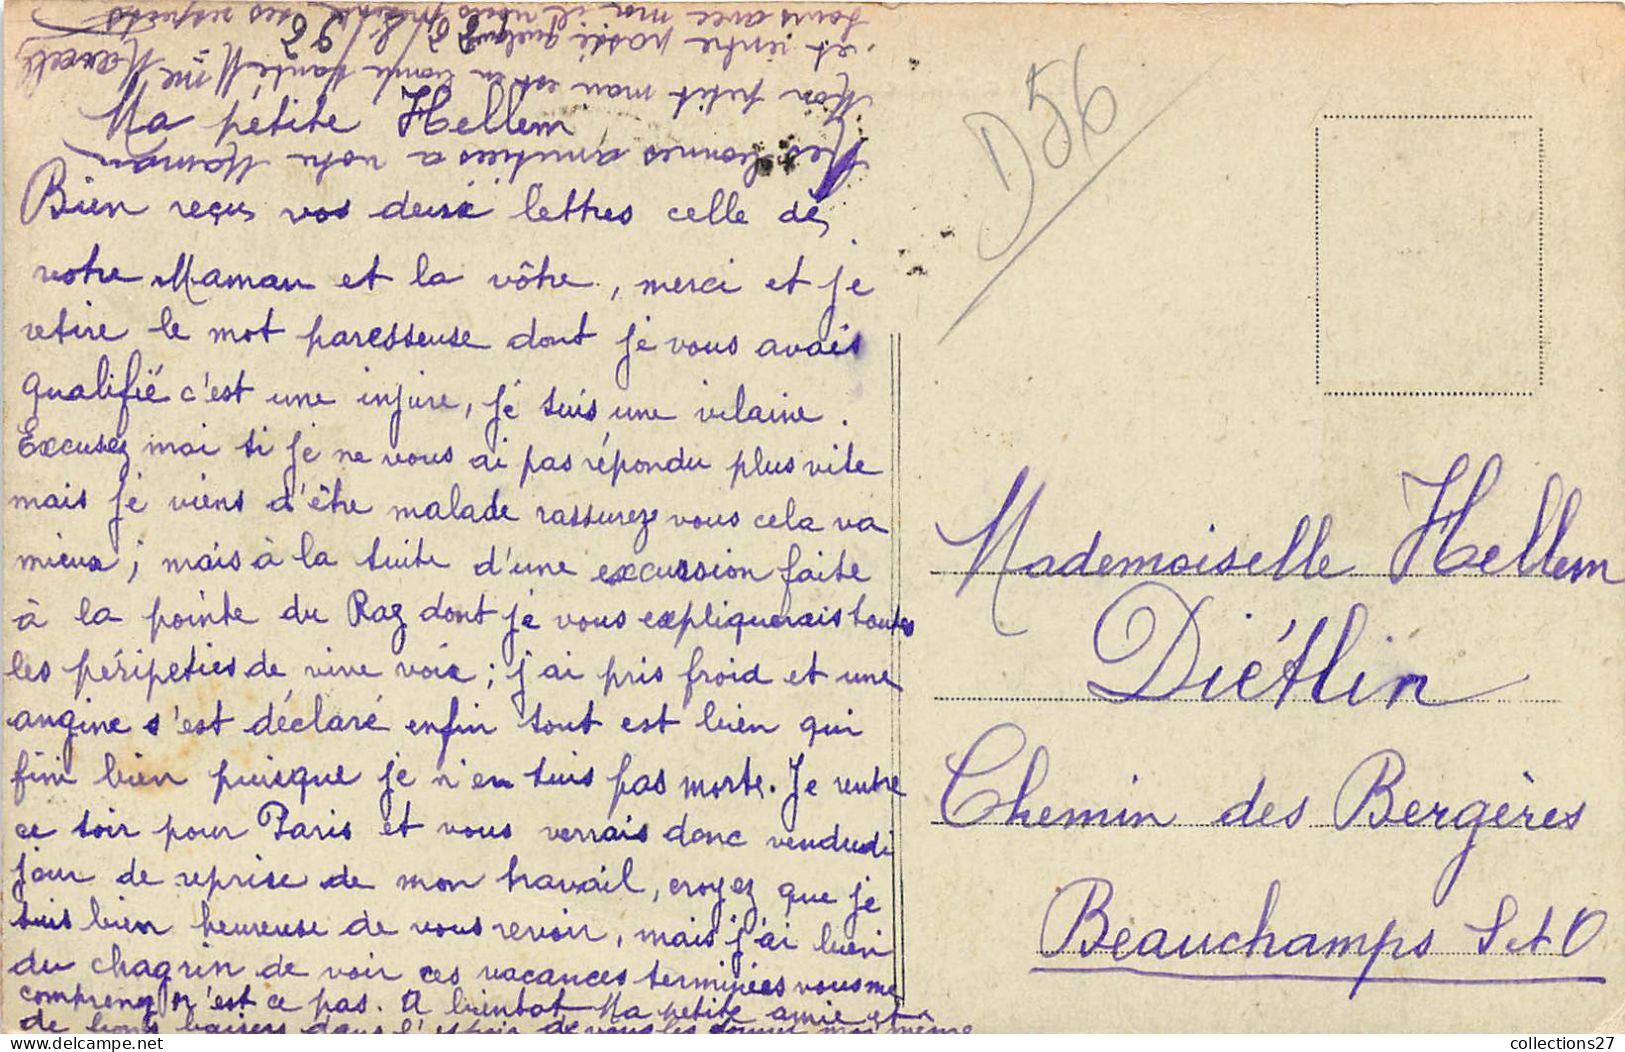 Ma pétite Hellem
Bien reçus vos deux lettres celle de
votre Maman et la vôtre, merci et je
retire le mot paresseuse dont je vous avais
qualifié c'est une injure, je suis une vilaine.
Excusez moi si je ne vous ai pas répondu plus vite
mais je viens d'être malade rassurez vous cela va
mieux; mais à la suite d'une excussion faite
à la pointe du Raz dont je vous expliquerais toutes
les péripeties de vive voix; j'ai pris froid et une
angine s'est déclaré enfin tout est bien qui
fini bien puisque je n'en suis pas morte. Je rentre
ce soir pour Paris et vous verrais donc vendredi
jour de reprise de mon travail, croyez que je
suis bien heureuse de vous revoir, mais j'ai bien
du chagrin de voir ces vacances terminées vous me
comprenez n'est ce pas. A bientot Ma petite amie et
de bons baisers dans l'espoir de vous les donner moi même
Mes bonnes amitiées a votre Maman
Mon petit mari est en bonne santé Mme Marcelle
et rentre passé quelques
jours avec moi il vous présente ses respects
D56
Mademoiselle Hellem
Diétlin
Chemin des Bergères
Beauchamps S et O
collections27